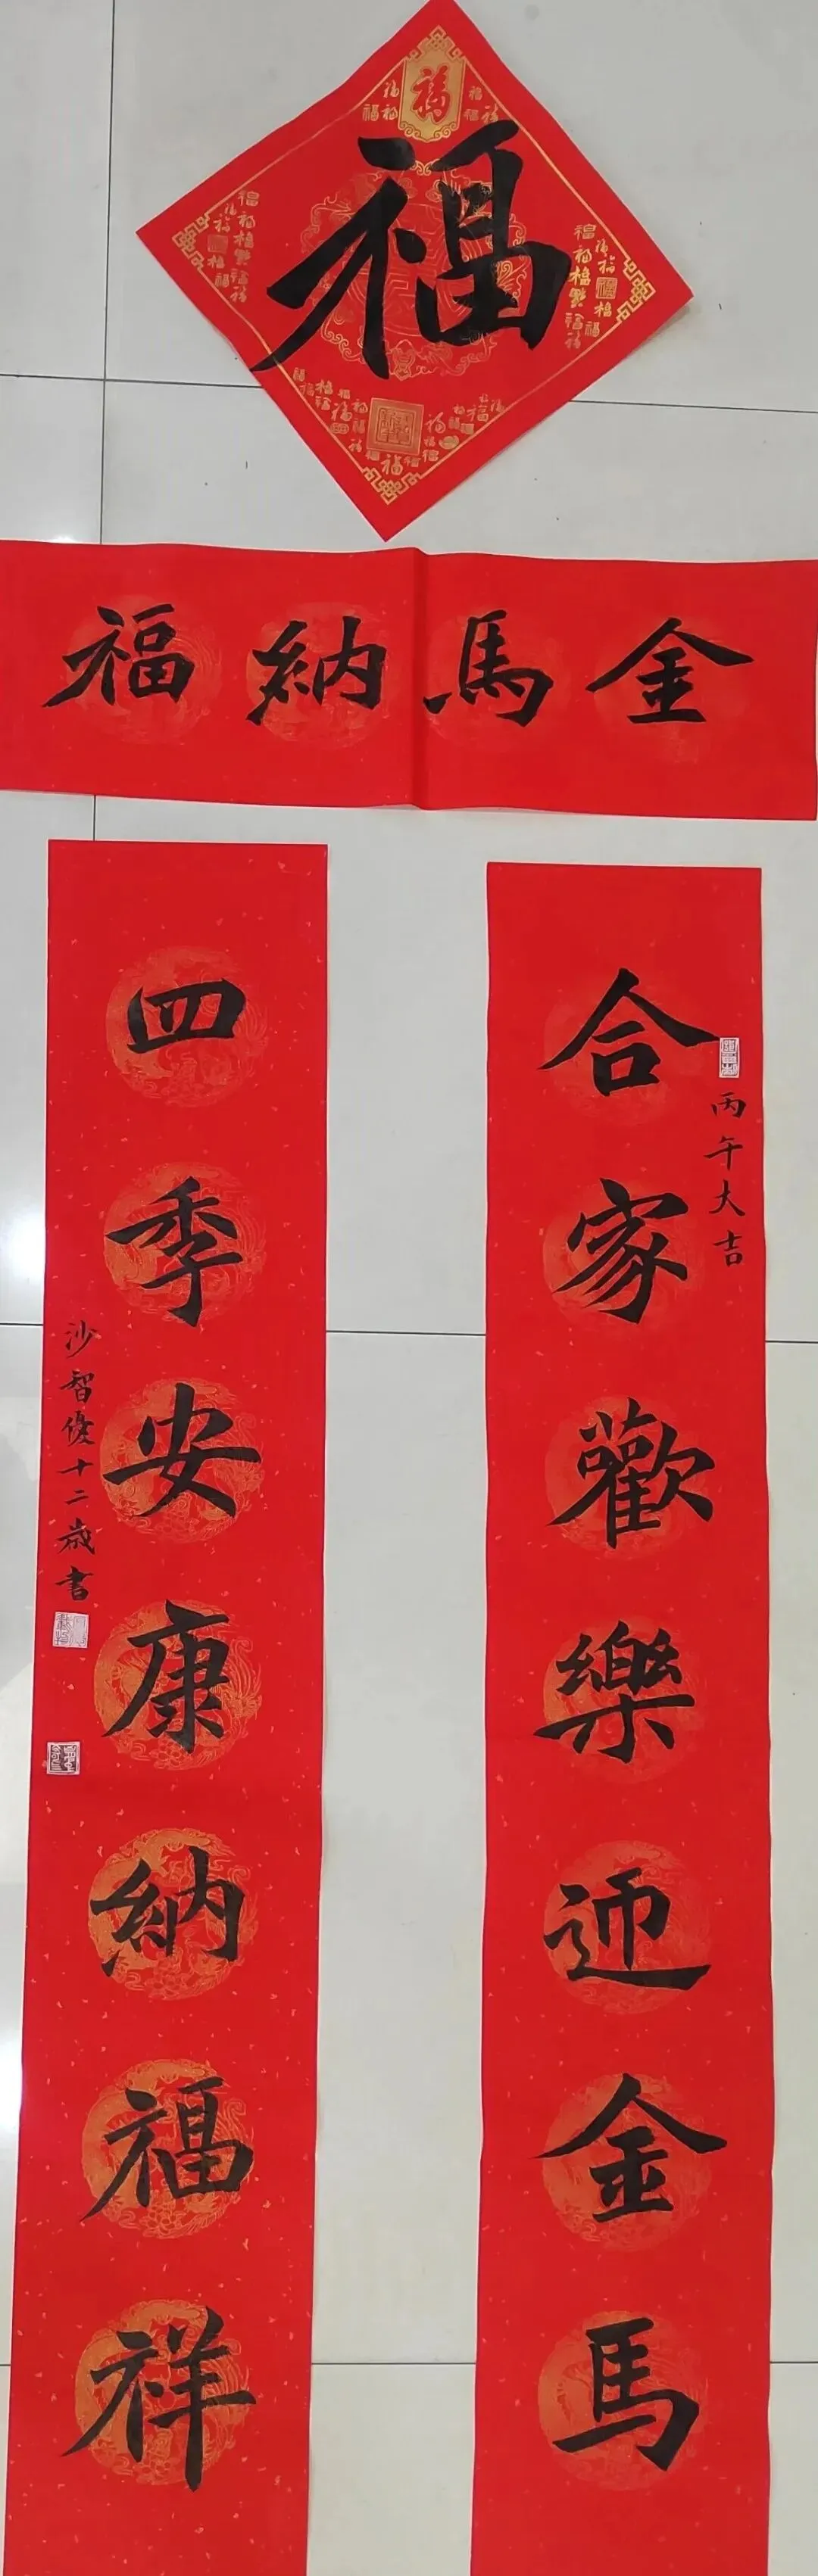 福
金馬納福
合家歡樂迊金馬
丙午大吉
四季安康納福祥
沙智優十二歲書